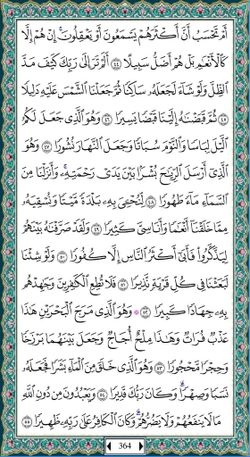 أَمْ تَحْسَبُ أَنَّ أَكْثَرَهُمْ يَسْمَعُونَ أَوْ يَعْقِلُونَ إِنْ هُمْ إِلَّا
كَالْأَنْعَامِ بَلْ هُمْ أَضَلُّ سَبِيلًا ٤٤ أَلَمْ تَرَ إِلَىٰ رَبِّكَ كَيْفَ مَدَّ
الظِّلَّ وَلَوْ شَاءَ لَجَعَلَهُ سَاكِنًا ثُمَّ جَعَلْنَا الشَّمْسَ عَلَيْهِ دَلِيلًا
٤٥ ثُمَّ قَبَضْنَاهُ إِلَيْنَا قَبْضًا يَسِيرًا ٤٦ وَهُوَ الَّذِي جَعَلَ لَكُمُ
اللَّيْلَ لِبَاسًا وَالنَّوْمَ سُبَاتًا وَجَعَلَ النَّهَارَ نُشُورًا ٤٧ وَهُوَ
الَّذِي أَرْسَلَ الرِّيَاحَ بُشْرًا بَيْنَ يَدَيْ رَحْمَتِهِ ۚ وَأَنْزَلْنَا مِنَ
السَّمَاءِ مَاءً طَهُورًا ٤٨ لِنُحْيِيَ بِهِ بَلْدَةً مَيْتًا وَنُسْقِيَهُ
مِمَّا خَلَقْنَا أَنْعَامًا وَأَنَاسِيَّ كَثِيرًا ٤٩ وَلَقَدْ صَرَّفْنَاهُ بَيْنَهُمْ
لِيَذَّكَّرُوا فَأَبَىٰ أَكْثَرُ النَّاسِ إِلَّا كُفُورًا ٥٠ وَلَوْ شِئْنَا
لَبَعَثْنَا فِي كُلِّ قَرْيَةٍ نَذِيرًا ٥١ فَلَا تُطِعِ الْكَافِرِينَ وَجَاهِدْهُمْ
بِهِ جِهَادًا كَبِيرًا ٥٢ وَهُوَ الَّذِي مَرَجَ الْبَحْرَيْنِ هَٰذَا
عَذْبٌ فُرَاتٌ وَهَٰذَا مِلْحٌ أُجَاجٌ وَجَعَلَ بَيْنَهُمَا بَرْزَخًا
وَحِجْرًا مَحْجُورًا ٥٣ وَهُوَ الَّذِي خَلَقَ مِنَ الْمَاءِ بَشَرًا فَجَعَلَهُ
نَسَبًا وَصِهْرًا ۗ وَكَانَ رَبُّكَ قَدِيرًا ٥٤ وَيَعْبُدُونَ مِنْ دُونِ اللَّهِ
مَا لَا يَنْفَعُهُمْ وَلَا يَضُرُّهُمْ ۗ وَكَانَ الْكَافِرُ عَلَىٰ رَبِّهِ ظَهِيرًا ٥٥
364